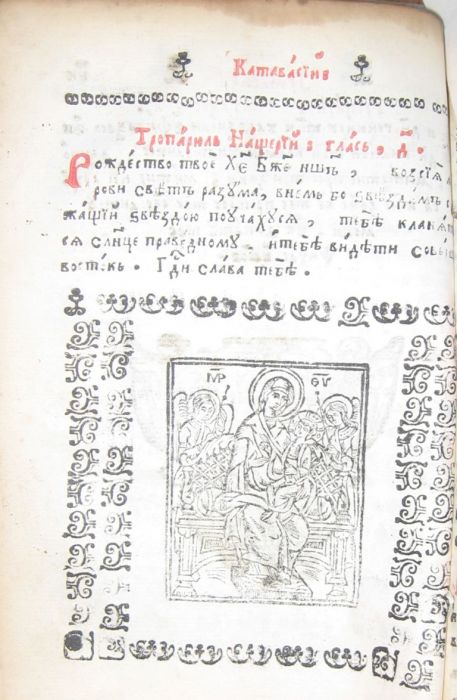 Катавасїиѡ
Тропарюль Нащерїи ҙ гласъ, д҃.
Рождество твое Хс҃е Бж҃е ншъ, возсїѧ
рови свѣтъ разꙋма, внемъ бо ѕвѣздамъ
жащїи ѕвѣздою поꙋчахꙋсѧ, тебѣ кланѧ
тисѧ слн҃це праведномꙋ. и тебе видѣти со
востокъ. Гд҃и слава тебѣ.
МР ѲУ